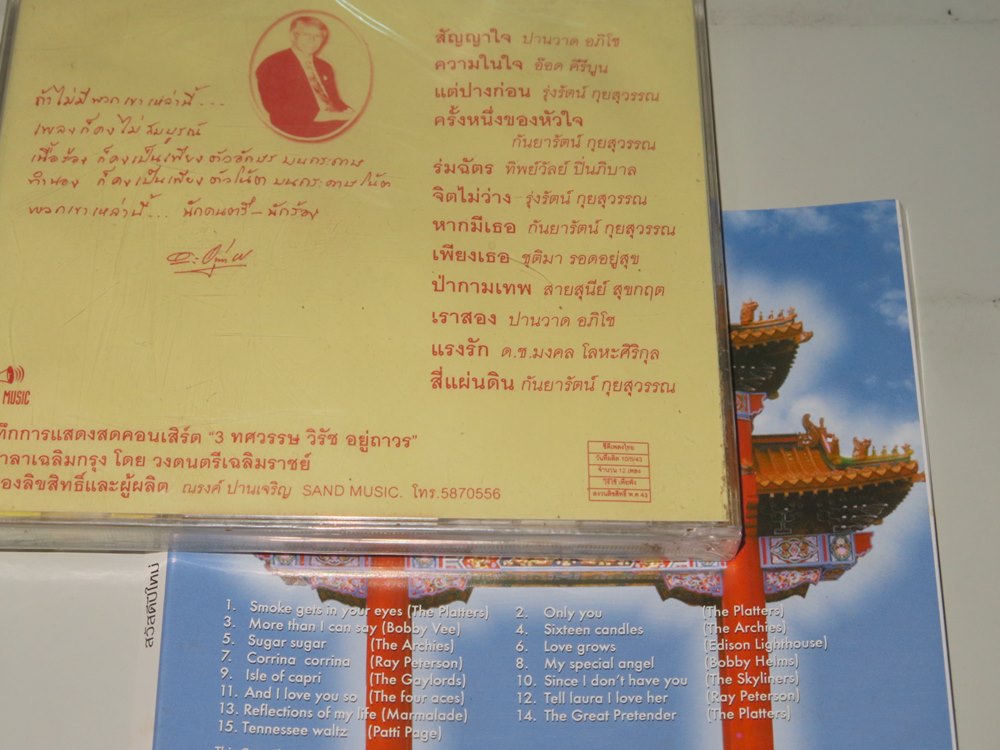 สัญญาใจ ปานวาด อภิโช
ความในใจ อ๊อด คีรีบูน
แต่ปางก่อน รุ่งรัตน์ กุยสุวรรณ
ครั้งหนึ่งของหัวใจ
กันยารัตน์ กุยสุวรรณ
ร่มฉัตร ทิพย์วัลย์ ปิ่นภิบาล
จิตไม่ว่าง รุ่งรัตน์ กุยสุวรรณ
หากมีเธอ กันยารัตน์ กุยสุวรรณ
เพียงเธอ ชุติมา รอดอยู่สุข
ป่ากามเทพ สายสุนีย์ สุขกฤต
เราสอง ปานวาด อภิโช
แรงรัก ด.ช.มงคล โลหะศิริกุล
สี่แผ่นดิน กันยารัตน์ กุยสุวรรณ
ถ้าไม่มีพวกเขาเหล่านี้...
เพลงก็คงไม่สมบูรณ์
เนื้อร้อง ก็คงเป็นเพียงตัวอักษรบนกระดาษ
ทำนอง ก็คงเป็นเพียงตัวโน้ตบนกระดาษโน้ต
พวกเขาเหล่านี้... นักดนตรี – นักร้อง
MUSIC
ทึกการแสดงสดคอนเสิร์ต "3 ทศวรรษ วิรัช อยู่ถาวร"
าลาเฉลิมกรุง โดย วงดนตรีเฉลิมราชย์
องลิขสิทธิ์และผู้ผลิต ณรงค์ ปานเจริญ SAND MUSIC. โทร.5870556
ซีดีเพลงไทย
วันที่ผลิต 10/6/43
จำนวน 12 เพลง
วิธีใช้ เพื่อฟัง
สงวนลิขสิทธิ์ พ.ศ.43
สวัสดีปีใหม่
1. Smoke gets in your eyes (The Platters) 2. Only you (The Platters)
3. More than I can say (Bobby Vee) 4. Sixteen candles (The Archies)
5. Sugar sugar (The Archies) 6. Love grows (Edison Lighthouse)
7. Corrina corrina (Ray Peterson) 8. My special angel (Bobby Helms)
9. Isle of capri (The Gaylords) 10. Since I don't have you (The Skyliners)
11. And I love you so (The four aces) 12. Tell laura I love her (Ray Peterson)
13. Reflections of my life (Marmalade) 14. The Great Pretender (The Platters)
15. Tennessee waltz (Patti Page)